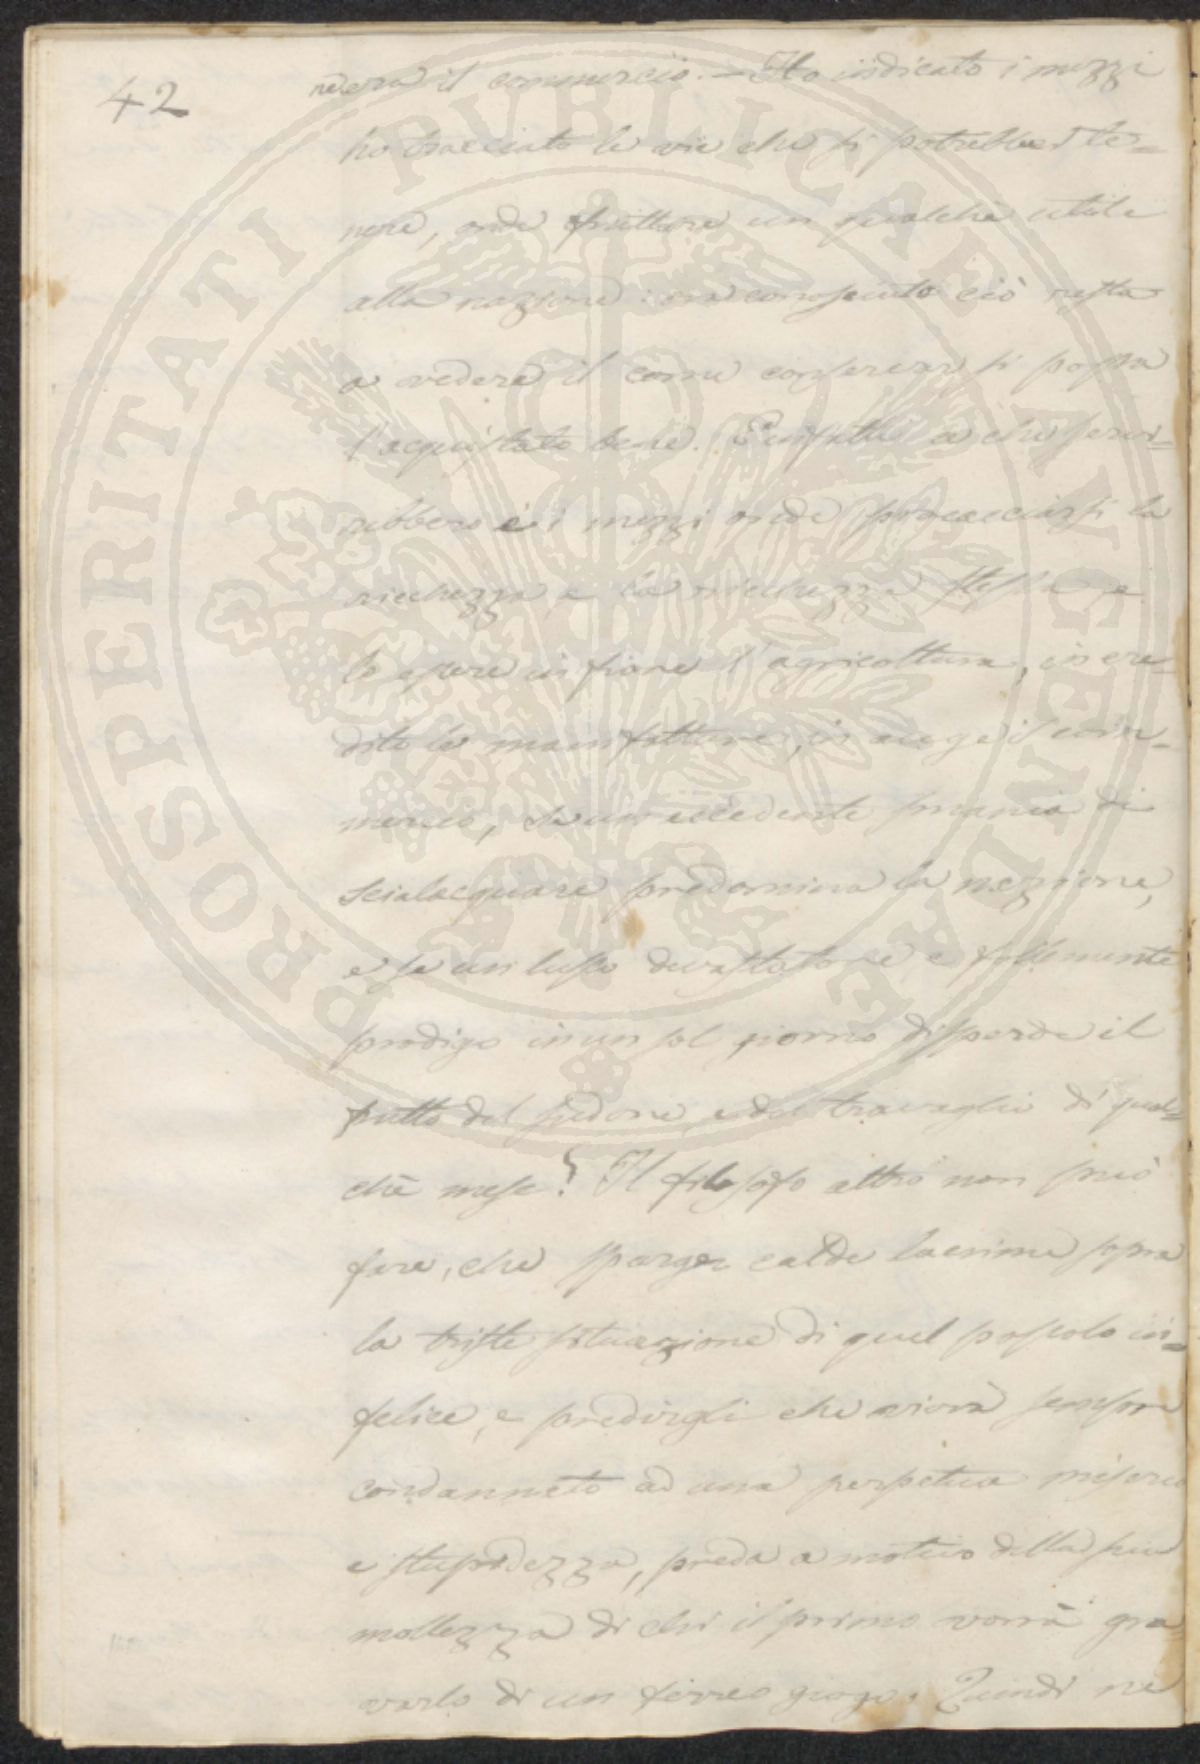 42
nera il commercio. - Ho indicato i mezzi
ho tracciate le vie che si potrebber te=
nere, onde fruttare un qualche utile
alla nazione: ora conosciuto ciò resta
a vedere il come conservar si possa
l'acquistato bene. E infatti a che servi=
rebbero i mezzi onde procacciarsi la
ricchezza, e la ricchezza stessa e
lo essere in fiore l'agricoltura, in cre=
dito le manifatture, in auge il com=
mercio, se un eccedente smania di
scialacquare predomina la nazione,
e se un lusso devastatore e follemente
prodigo in un sol giorno disperde il
frutto del sudore, e del travaglio di qual=
che mese? Il filosofo altro non può
fare, che sparger calde lacrime sopra
la triste situazione di quel popolo in=
felice, e predirgli che vivrà sempre
condannato ad una perpetua miseria
e stupidezza, preda a motivo della sua
mollezza di chi il primo vorrà gra
varlo di un ferreo giogo. Quindi ne
PROSPERITATI PUBLICAE AUGENDAE